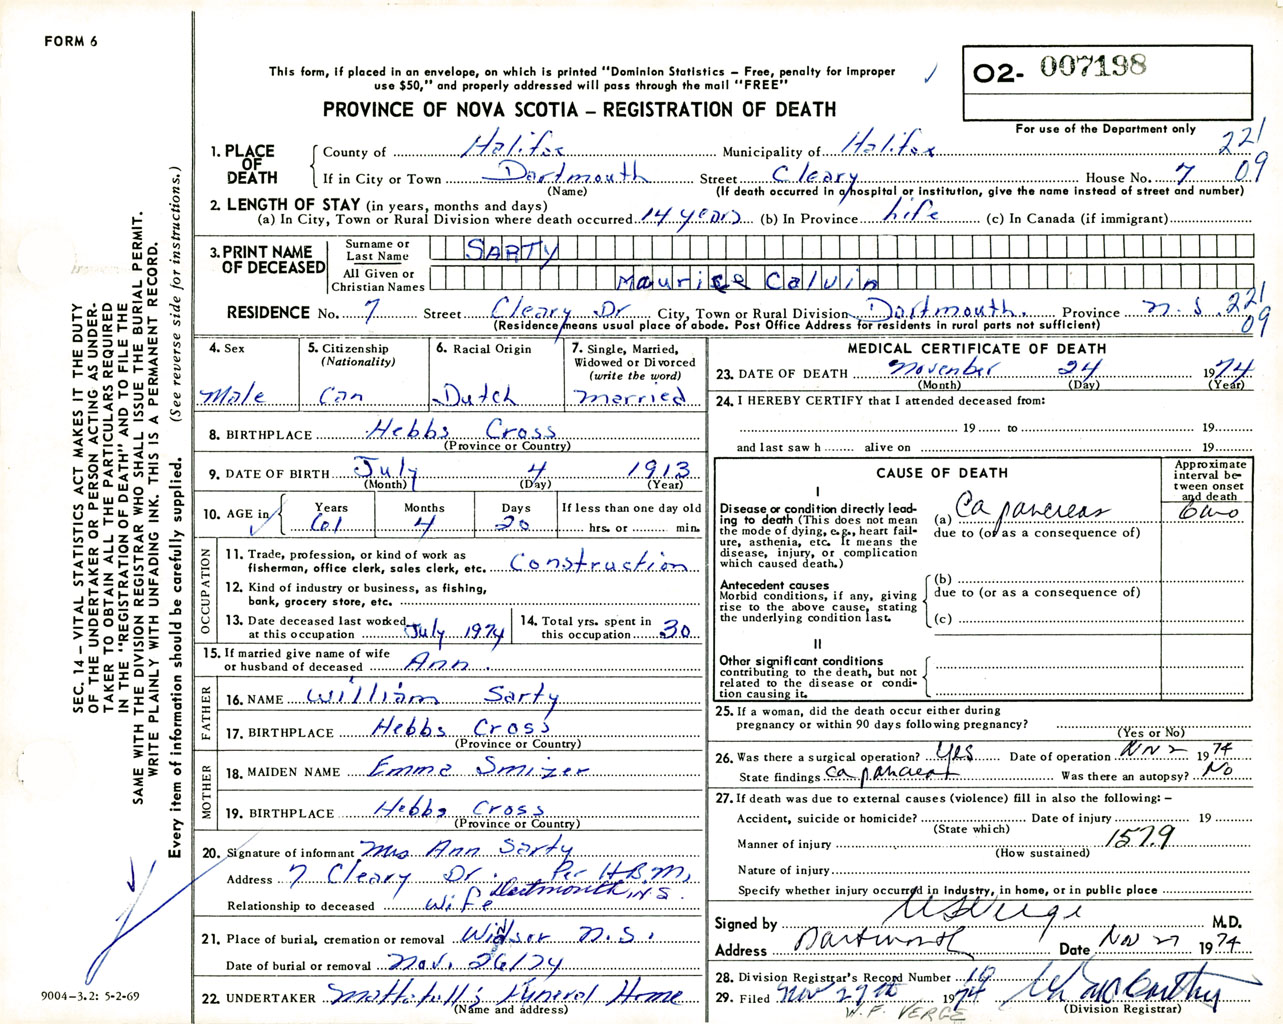 FORM 6
This form, if placed in an envelope, on which is printed "Dominion Statistics – Free, penalty for improper
use $50," and properly addressed will pass through the mail "FREE"
O2- 007198
PROVINCE OF NOVA SCOTIA – REGISTRATION OF DEATH
For use of the Department only
221
09
1. PLACE OF DEATH
County of Halifax Municipality of Halifax
If in City or Town Dartmouth Street Cleary House No. 7
(Name) (If death occurred in a hospital or institution, give the name instead of street and number)
2. LENGTH OF STAY (in years, months and days)
(a) In City, Town or Rural Division where death occurred 14 years (b) In Province Life (c) In Canada (if immigrant)
3. PRINT NAME OF DECEASED
Surname or Last Name SARTY
All Given or Christian Names Maurice Calvin
RESIDENCE No. 7 Street Cleary Dr City, Town or Rural Division Dartmouth. Province N.S. 221
09
(Residence means usual place of abode. Post Office Address for residents in rural parts not sufficient)
4. Sex
Male
5. Citizenship
(Nationality)
Can
6. Racial Origin
Dutch
7. Single, Married,
Widowed or Divorced
(write the word)
married
8. BIRTHPLACE Hebbs Cross
(Province or Country)
9. DATE OF BIRTH July 4 1913
(Month) (Day) (Year)
10. AGE in
Years Months Days If less than one day old
61 4 20 hrs. or min.
OCCUPATION
11. Trade, profession, or kind of work as
fisherman, office clerk, sales clerk, etc. Construction
12. Kind of industry or business, as fishing,
bank, grocery store, etc.
13. Date deceased last worked
at this occupation July 1974
14. Total yrs. spent in
this occupation 30
15. If married give name of wife
or husband of deceased Ann.
FATHER
16. NAME William Sarty
17. BIRTHPLACE Hebbs Cross
(Province or Country)
MOTHER
18. MAIDEN NAME Emma Smizer
19. BIRTHPLACE Hebbs Cross
(Province or Country)
20. Signature of informant Mrs Ann Sarty
Address 7 Cleary Dr. Per H.B.M.
Dartmouth, N.S.
Relationship to deceased wife
21. Place of burial, cremation or removal Windsor N.S.
Date of burial or removal Nov. 26/74
22. UNDERTAKER Mattatall's Funeral Home
(Name and address)
MEDICAL CERTIFICATE OF DEATH
23. DATE OF DEATH November 24 1974
(Month) (Day) (Year)
24. I HEREBY CERTIFY that I attended deceased from:
19 to 19
and last saw h alive on 19
CAUSE OF DEATH
Approximate
interval be-
tween onset
and death
I
Disease or condition directly lead-
ing to death (This does not mean
the mode of dying, e.g., heart fail-
ure, asthenia, etc. It means the
disease, injury, or complication
which caused death.)
(a) Ca pancreas
due to (or as a consequence of)
Antecedent causes
Morbid conditions, if any, giving
rise to the above cause, stating
the underlying condition last.
(b)
due to (or as a consequence of)
(c)
II
Other significant conditions
contributing to the death, but not
related to the disease or condi-
tion causing it.
25. If a woman, did the death occur either during
pregnancy or within 90 days following pregnancy?
(Yes or No)
26. Was there a surgical operation? Yes Date of operation Nov 2 1974
State findings ca pancreas Was there an autopsy? No
27. If death was due to external causes (violence) fill in also the following: –
Accident, suicide or homicide? Date of injury 19
(State which)
Manner of injury 157.9
(How sustained)
Nature of injury
Specify whether injury occurred in industry, in home, or in public place
Signed by M.D.
Address Dartmouth Date Nov 27 1974
28. Division Registrar's Record Number
29. Filed Nov 27th 1974
(Division Registrar)
W.F. VERGE
SEC. 14 – VITAL STATISTICS ACT MAKES IT THE DUTY
OF THE UNDERTAKER OR PERSON ACTING AS UNDER-
TAKER TO OBTAIN ALL THE PARTICULARS REQUIRED
IN THE "REGISTRATION OF DEATH" AND TO FILE THE
SAME WITH THE DIVISION REGISTRAR WHO SHALL ISSUE THE BURIAL PERMIT.
WRITE PLAINLY WITH UNFADING INK. THIS IS A PERMANENT RECORD.
Every item of information should be carefully supplied. (See reverse side for instructions.)
9004-3.2: 5-2-69